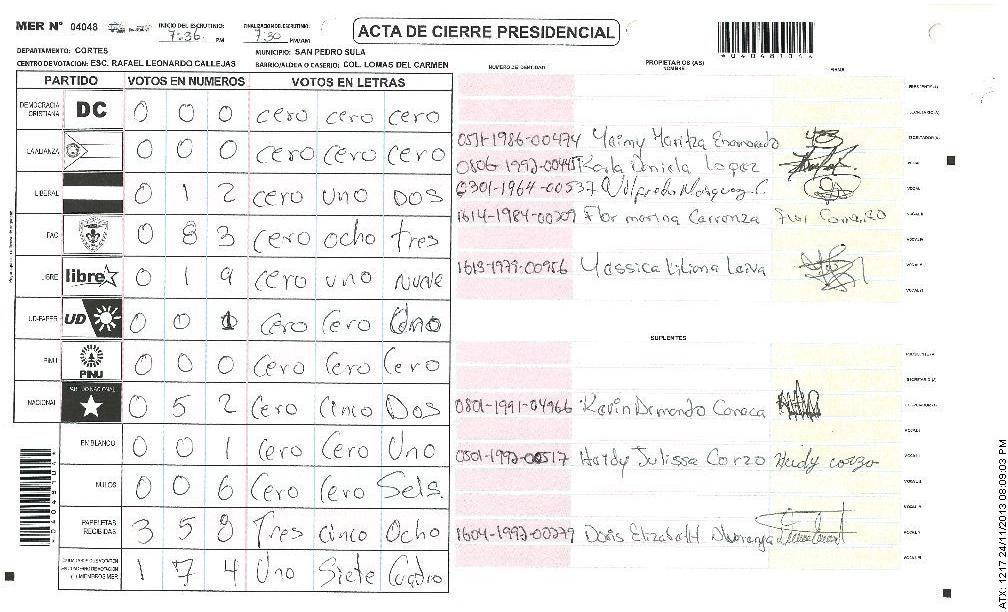 MER N° 04048 INICIO DEL ESCRUTINIO: 7:36 PM FINALIZACION ESCRUTINIO: 7:30 PM/AM
ACTA DE CIERRE PRESIDENCIAL
*04048101*
DEPARTAMENTO: CORTES MUNICIPIO: SAN PEDRO SULA
CENTRO DE VOTACION: ESC. RAFAEL LEONARDO CALLEJAS BARRIO/ALDEA O CASERIO: COL. LOMAS DEL CARMEN
PARTIDO VOTOS EN NUMEROS VOTOS EN LETRAS
DEMOCRACIA CRISTIANA DC 0 0 0 cero cero cero
LA ALIANZA 0 0 0 cero cero cero
LIBERAL 0 1 2 cero uno Dos
PAC 0 8 3 cero ocho tres
LIBRE libre 0 1 9 cero uno nueve
UD-FAPER UD 0 0 1 Cero Cero Uno
PINU PINU 0 0 0 Cero Cero Cero
NACIONAL PARTIDO NACIONAL 0 5 2 Cero Cinco Dos
EN BLANCO 0 0 1 Cero Cero Uno
NULOS 0 0 6 Cero Cero Seis.
PAPELETAS RECIBIDAS 3 5 8 Tres cinco Ocho
MIEMBROS MER 1 7 4 Uno Siete Cuatro
NUMERO DE IDENTIDAD PROPIETARIOS (AS) NOMBRE FIRMA
0511-1986-00474 Yaimy Maritza Enamorado
Karla Daniela Lopez
0301-1964-00537 Wilfredo Marquez C.
1614-1984-00209 Flor marina Carranza
1613-1979-00956 Yessica Liliana Leiva
SUPLENTES
0801-1991-04966 Kevin Armando
0501-1992-00517 Heidy Julissa Corzo Heidy corzo
Doris Elizabeth
*04048101*
ATX: 1217 24/11/2013 08:09:03 PM